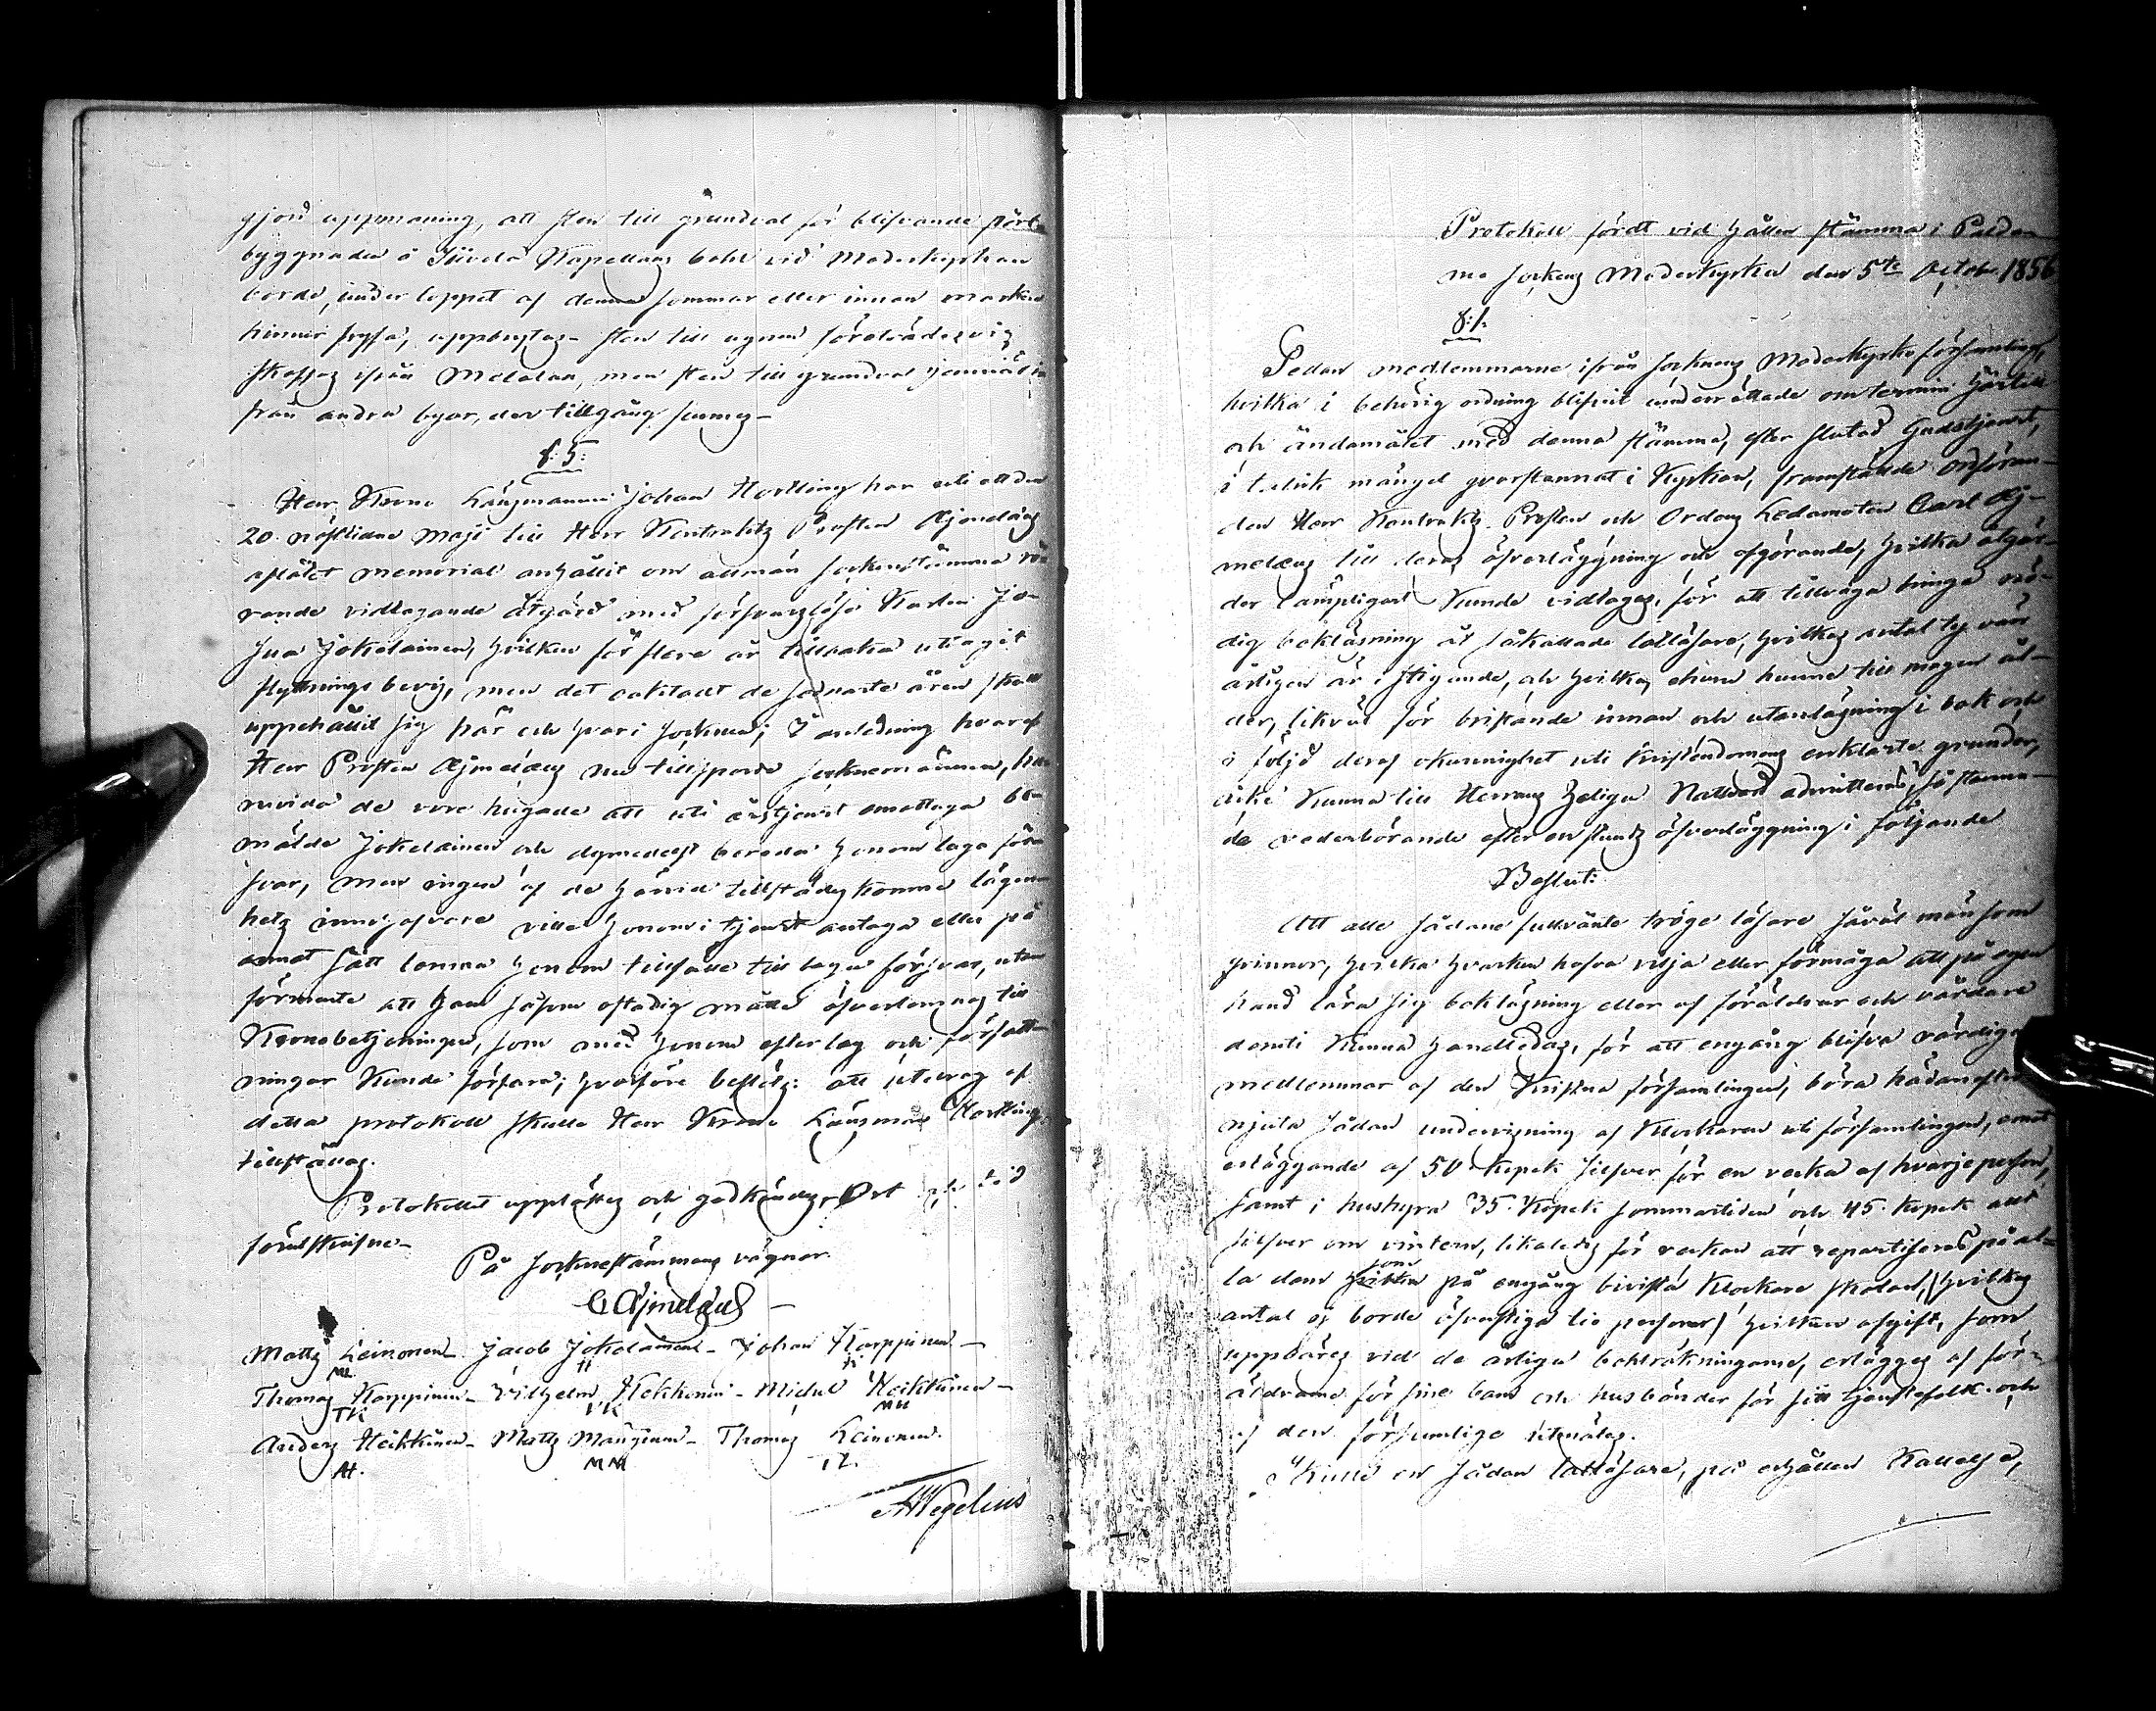 gjord uppmaning, att sten till grundval för blifvande
byggnaden å Kapellans bohl vid Moderkyrkan
borde, under loppet af denna sommar eller innan marken
hinner frysa, uppbrytas sten till ugnen företrädesvis
skaffas ifrån Melalan, men sten till grundval
från andra byar, der tillgång finnes-
§. 5.
Herr Krono Länsmannen Johan Hortling har uti ett den
20. nästlidne Maji till Herr Kontrakts Prosten Ajmelæus
aflåtet memorial anhållit om allmän sockenstämma
rande vidtagande åtgärd med försvarslöse Karlen Jo-
sua Jokelainen, hvilken för flere år tillbaka uttagit
flyttnings bevis, men det oaktadt de senaste åren skall
uppehållit sig här och hvar i Socknen; I anledning hvaraf
Herr Prosten Ajmelæus nu tillsporde Socknemännen, hu-
ruvida de vore hugade att uti årstjenst emottaga be-
mälde Jokelainen och dymedelst bereda honom laga för-
svar, men ingen af de härvid tillstädes komne lägen-
hets innehafvare ville honom i tjenst antaga eller på
annat sätt lemna honom tillfälle till laga försvar, utan
förmente att han såsom ostadig måtte öfverlemnas till
Kronobetjeningen, som med honom efter lag och författ-
ningar Kunde förfara; hvarföre beslöts: att utdrag af
detta protokoll skulle Herr Krono Länsman Hortling
tillställas.
Protokollet upplästes och godkändes, Ort och tid
förutskrifne-
På Socknestämmans vägnar
C Ajmelæus -
Matts Leinonen- Jacob Jokelainen- Johan Karppinen-
ML
Thomas Karppinen- Wilhelm Kekkonen- Michel Heikkinen-
TK VK MH
Anders Heikkinen- Matts Manginen- Thomas Leinonen.
AH. MM TL.
AWegelius
Protokoll fördt vid hållen stämma i Paldamo
mo Sockens Moderkyrka den 5te Octob. 1856
§. 1.
Sedan medlemmarne ifrån Socknens Moderkyrko församling,
hvilka i behörig ordning blifvit underrättade om termin härtill
och ändamålet med denna stämma, efter slutad Gudstjenst,
i talrik mängd qvarstannat i Kyrkan, framstälde ordföran-
den Herr Kontrakts Prosten och Ordens Ledamoten Carl Aj-
melæus till deras öfverläggning och afgörande, hvilka åtgär-
der lämpligast Kunde vidtagas, för att tillväga bringa nö-
dig bokläsning åt såkallade lattläsare, hvilkas antal ty värr
årligen är i stigande, och hvilka, ehuru hunne till mogen ål-
der, likväl för bristande innan och utanläsning i bok och
i följd deraf okunnighet uti Kristendomens enklaste grunder,
icke Kunna till Herrans heliga Nattvard admitteras, så stanna-
de vederbörande efter en stunds öfverläggning i följande
Beslut:
Att alle sådane fullvänte tröge läsare såväl män som
qvinnor, hvilka hvarken hafva vilja eller förmåga att på egen
hand lära sig bokläsning eller af föräldrar och vårdare
deruti Kunna handledas, för att engång blifva värdige
medlemmar af den Kristna församlingen, böra hädanefter
njuta sådan undervisning af Klockaren uti församlingen, emot
erläggande af 50 kopek silfver för en vecka af hvarje person,
samt i hushyra 35. Kopek sommartiden och 45. kopek allt
silfver om vintern, likaledes för veckan att repartiseras på al-
la dem hvilka som på engång bivista Klockare skolan, (hvilkas
antal ej borde öfverstiga tio personer) hvilken afgift, som
uppbäres vid de årliga boklräkningarne, erlägges af för-
äldrarne för sine barn och husbönder för sitt tjenstefolk och
af den försumlige utmätas.
Skulle en sådan lattläsare, på erhållen Kallelse,